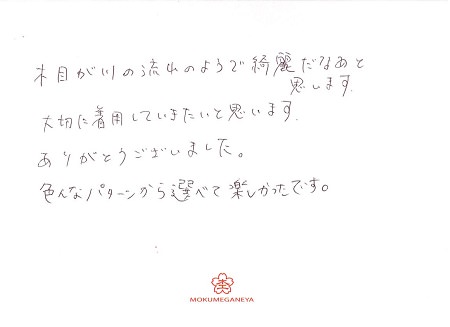 木目が川の流れのようで綺麗だなあと
思います。
大切に着用していきたいと思います。
ありがとうございました。
色んなパターンから選べて楽しかったです。
MOKUMEGANEYA